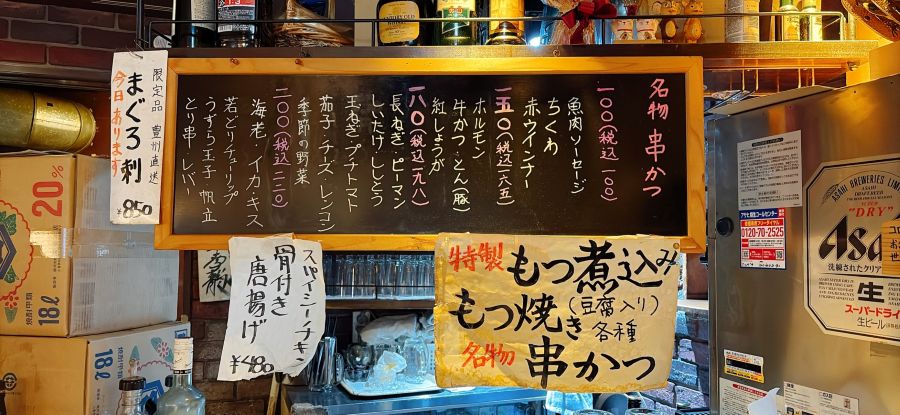 名物 串かつ
一〇〇(税込一〇〇)
魚肉ソーセージ
ちくわ
赤ウインナー
一五〇(税込一六五)
ホルモン
牛かつ・とん(豚)
紅しょうが
一八〇(税込一九八)
長ねぎ・ピーマン
しいたけ ししとう
玉ねぎ・プチトマト
茄子・チーズ・レンコン
季節の野菜
二〇〇(税込二二〇)
海老・イカ・キス
若どりチューリップ
うずら玉子・帆立
とり串・レバー
限定品 豊州直送
まぐろ刺
今日あります
¥850
スパイシーチキン
骨付き
唐揚げ
¥480
特製 もつ煮込み
もつ焼き(豆腐入り)各種
名物 串かつ
20%
18ℓ
18ℓ
0120-70-2525
ASAHI BREWERIES LIMITED
"DRY"
Asa
洗練されたクリア
生
スーパードライ
生ビール